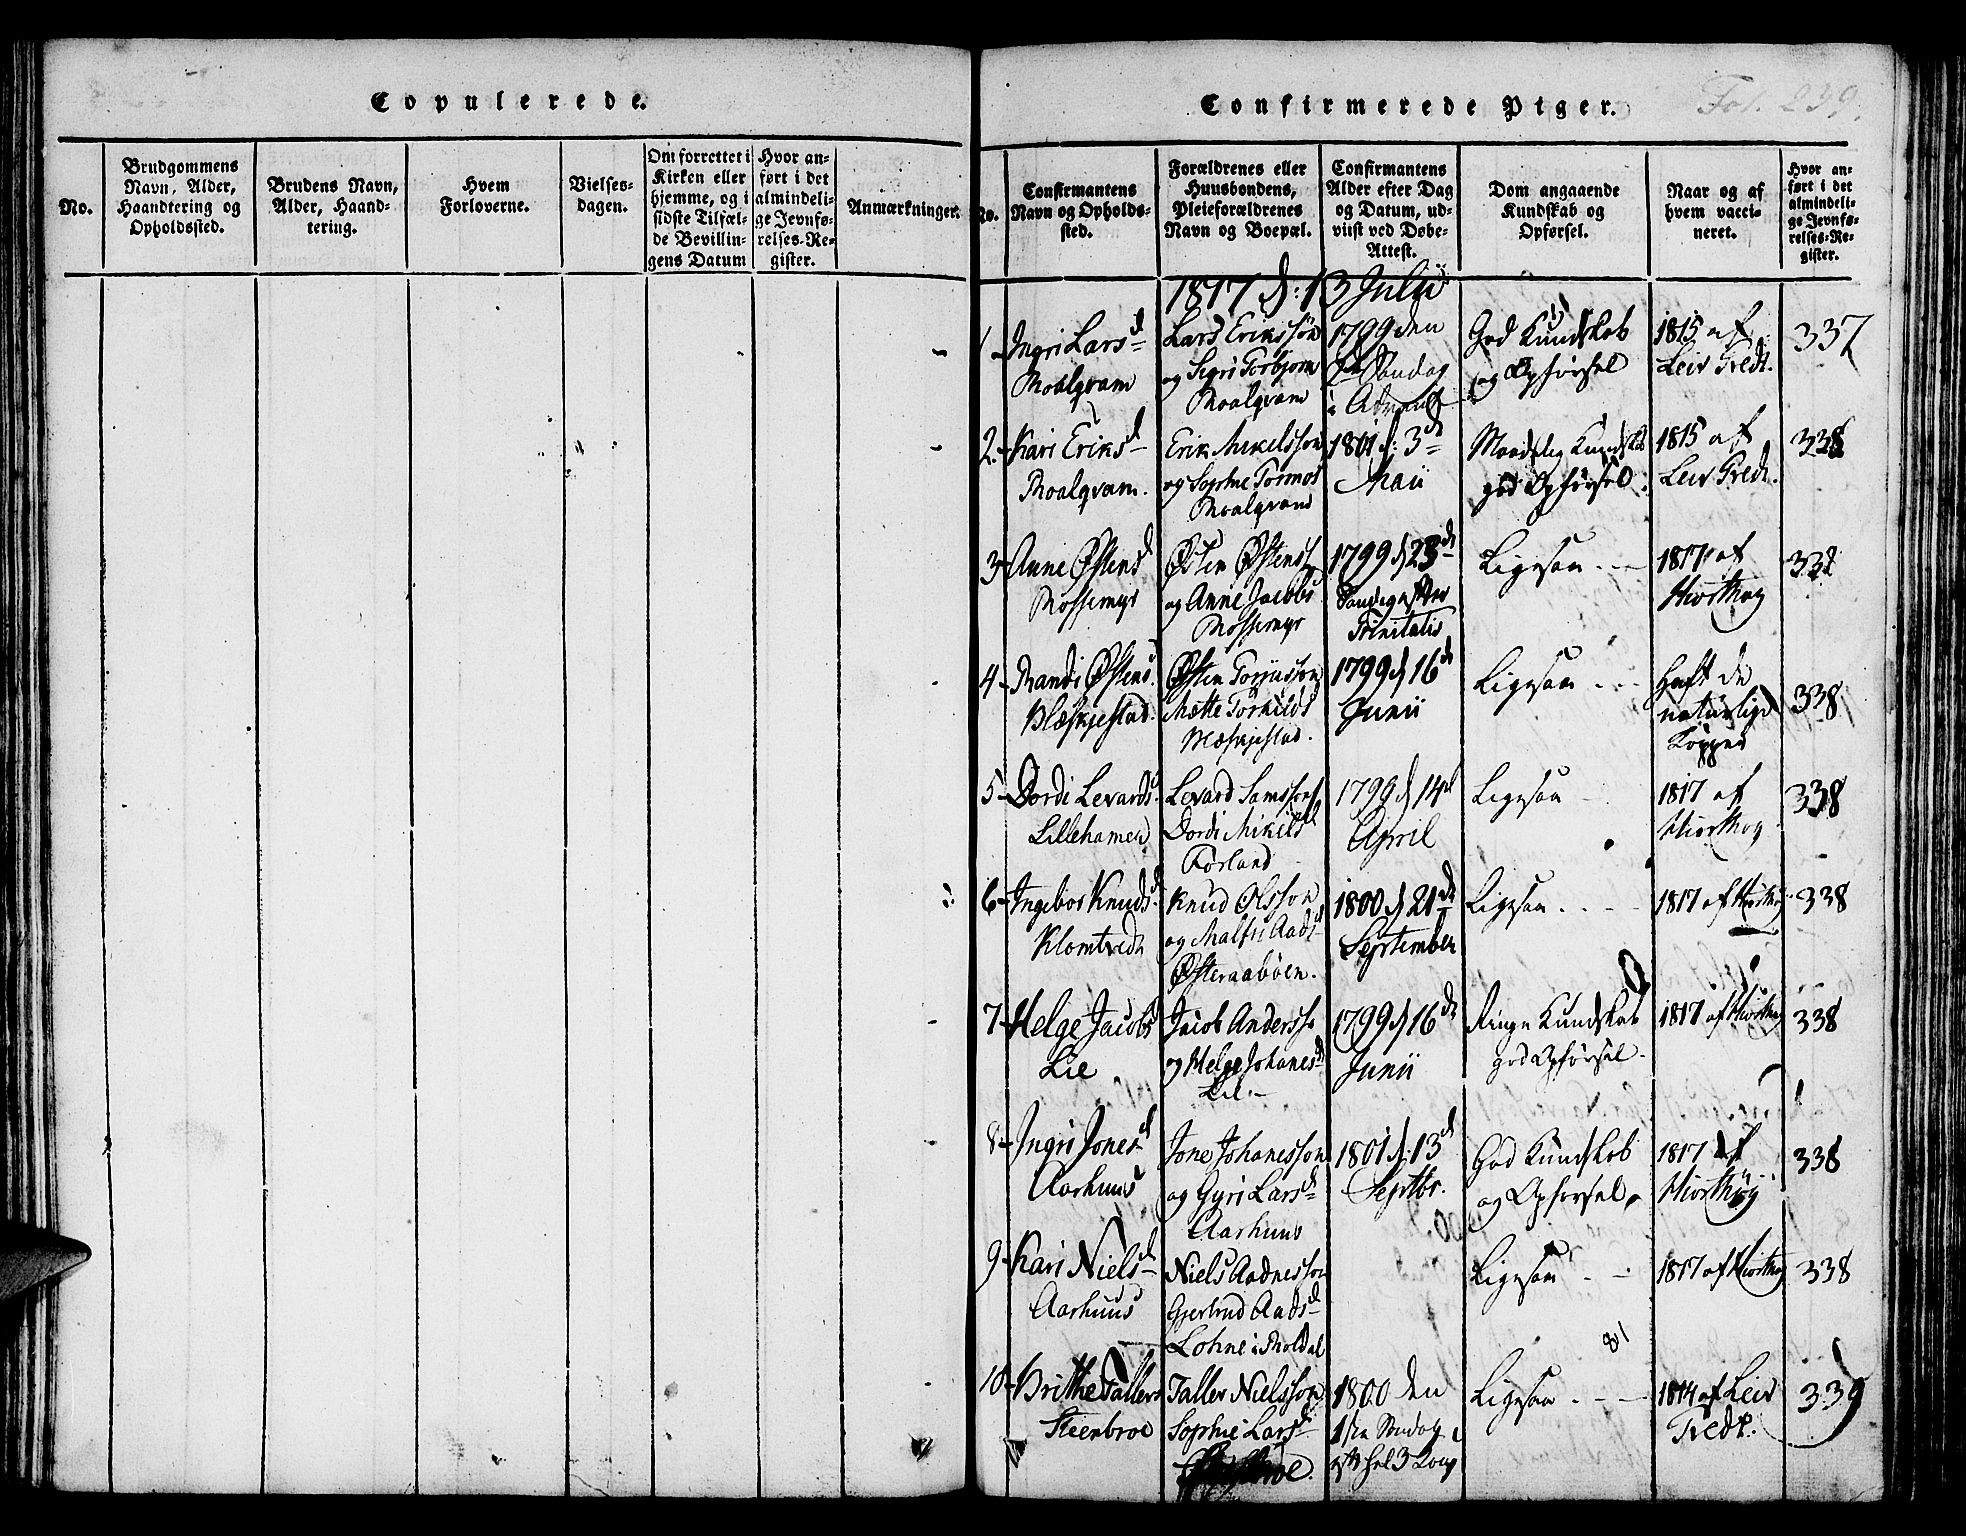 Copulerede.
No.
Brudgommens
Navn, Alder,
Haandtering og
Opholdssted.
Brudens Navn,
Alder, Haand-
tering.
Hvem
Forloverne.
Vielses-
dagen.
Om forrettet i
Kirken eller
hjemme, og i
sidste Tilfæl-
de Bevillin-
gens Datum
Hvor an-
ført i det
almindeli-
ge Jevnfø-
relses-Re-
gister.
Anmærkninger.
Confirmerede Piger.
Fol. 239.
No.
Confirmantens
Navn og Opholds-
sted.
Forældrenes eller
Huusbondens,
Pleieforældrenes
Navn og Boepæl.
Confirmantens
Alder efter Dag
og Datum, ud-
viist ved Døbe-
Attest.
Dom angaaende
Kundskab og
Opførsel.
Naar og af
hvem vacci-
neret.
Hvor an-
ført i det
almindeli-
ge Jevnfø-
relses-Re-
gister.
1817 d: 13 Julii
1 Ingri Larsd
Roalqvam
Lars Erikssøn
og Sigri Torbjørn
Roalqvam
1799 den
2den Søndag
i Advent
God Kundskab
og Opførsel
1815 af
Leiv Tredt.
337
2. Kari Eriksd
Roalqvam.
Erik Mikelsson
og Sophie Tormos
Roalqvam
1801 d: 3de
Maii
Maadelig Kundskab
god Opførsel.
1815 af
Leiv Tredt.
338
3 Anne Østensd
Mossemyr
Østen Østenss
og Anne Jacobs
Mossemyr
1799 d 23de
Søndag efter
Trinitatis
Ligesaa
1817 af
Hiorthøy
338
4 Randi Østens
Blæskjestad.
Østen Torjusson
Mætte Torkilds
Blæskjestad.
1799 d 16de
Junii
Ligesaa
Haft de
naturlige
Kopper
338
5 Dordi Levards
Lillehamer
Levard Samsson
Dordi Mikelsd
Førland
1799 d 14d
April
Ligesaa
1817 af
Hiorthøy
338
6 Ingebor Knudsd
Klomtvedt
Knud Olsson
og Malfri Aadsd
Østeraabøen.
1800 d 21de
September
Ligesaa
1817 af Hiorthøy
338
7 Helge Jacobsd
Lie
Jacob Anderss
og Helge Johanesd
Lie
1799 d 16de
Junii
Ringe Kundskab
god Opførsel
1817 af Hiorthøy
338
8 Ingri Jonesd
Aarhuus
Jone Johanesson
og Gyri Larsd
Aarhuus
1801 d: 13d
Septbr.
God Kundskab
og Opførsel
1817 af
Hiorthøy
338
9 Kari Nielsd
Aarhuus
Niels Aadnesson
Gjertrud Aadsd
Lohne i Roldal
Ligesaa
1817 af Hiorthøy
338
10 Brithe Tallers
Steenbroe
Taller Nielsson
Sophie Larsd
1800 den
1ste Søndag
Ligesaa
1814 af Leiv
Tredt.
339